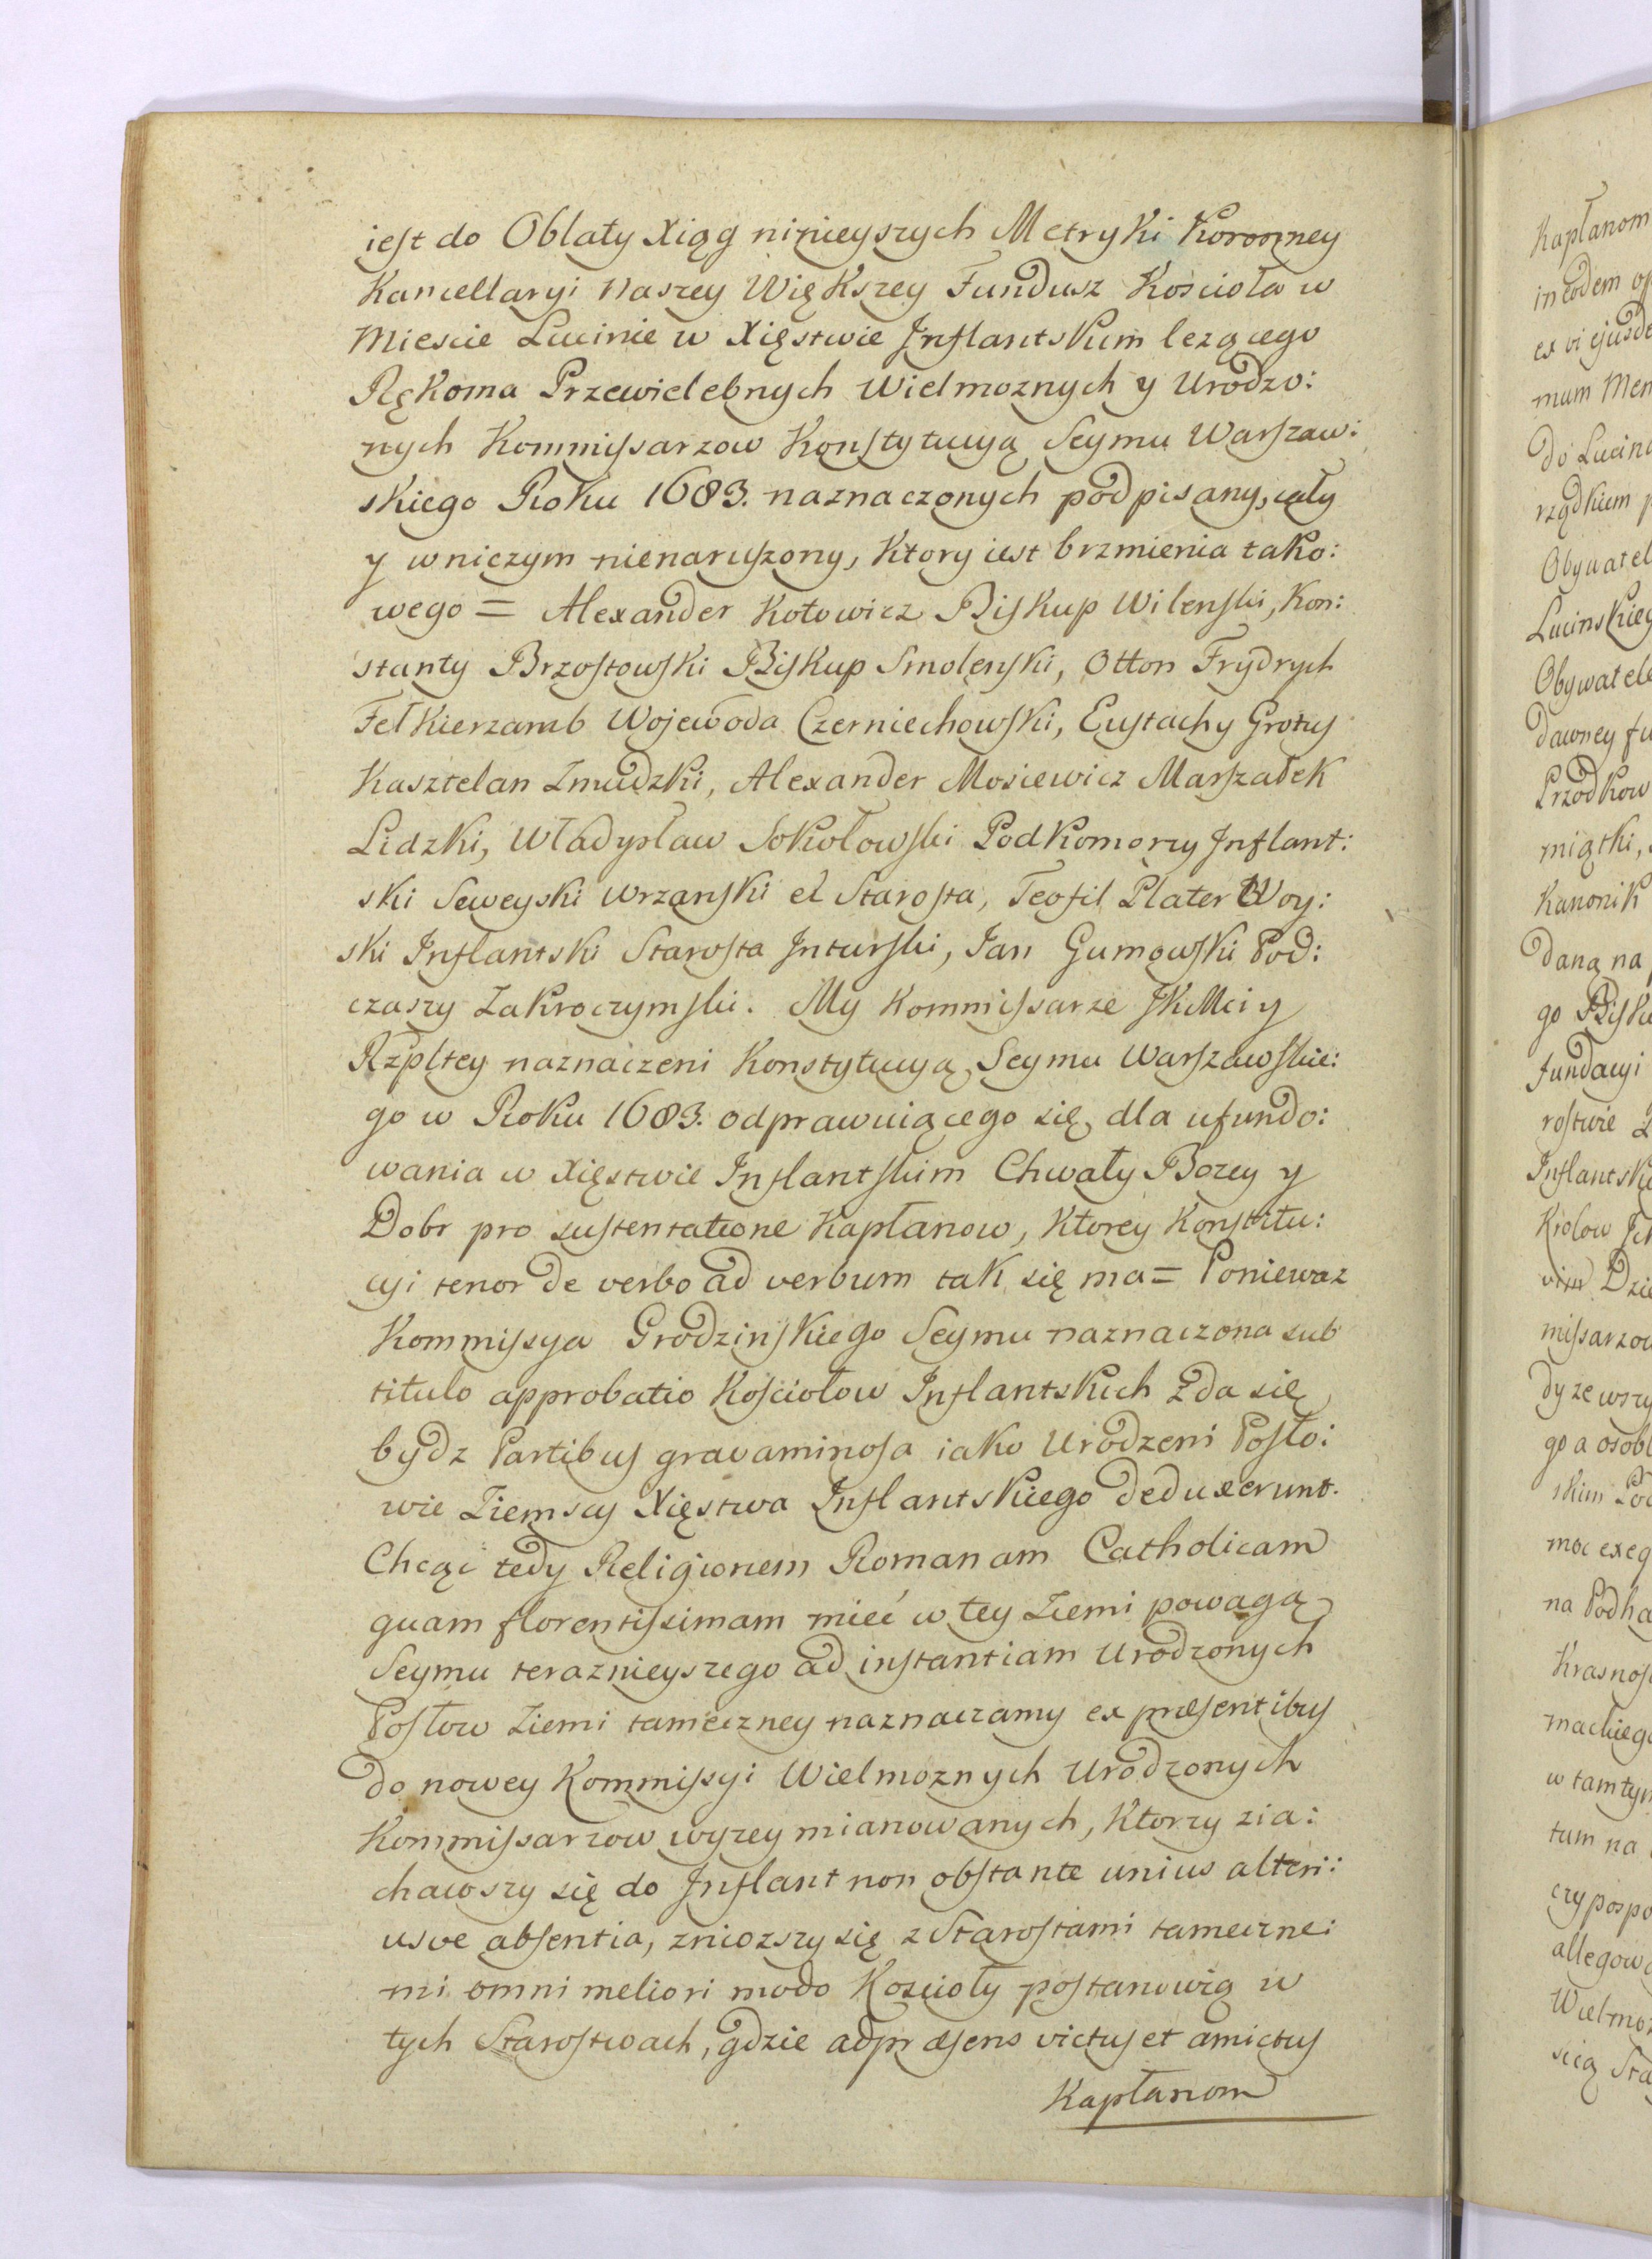 iest do Oblaty Xiąg ninieyszych Metryki Koronney
Kancellaryi Naszey Większey Fundusz Kościoła w
Miescie Lucinie w Xięstwie Inflantskum lezącego
Rękoma Przewielebnych Wielmoznych y Urodzo:
nych Kommissarzow Konstytucyą Seymu Warszaw:
skiego Roku 1683. naznaczonych podpisany, cały
y w niczym nienaruszony, Ktory iest brzmienia tako:
wego = Alexander Kotowicz Biskup Wilenski, Kon:
stanty Brzostowski Biskup Smolenski, Otton Frydrych
Felkierzamb Wojewoda Czerniechowski, Eustachy Grotus
Kasztelan Zmudzki, Alexander Mosiewicz Marszałek
Lidzki, Władysław Sokołowski Podkomorzy Inflant:
ski Seweyski Wrzanski et Starosta, Teofil Plater Woy:
ski Inflantski Starosta Inturski, Jan Gumowski Pod:
czaszy Zakroczymski. My Kommissarze JKMci y
Rzpltey naznaczeni Konstytucyą Seymu Warszawskie:
go w Roku 1683. odprawuiącego się, dla ufundo:
wania w Xięstwie Inflantskim Chwały Bozey y
Dobr pro sustentatione Kapłanow, Ktorey Konstitu:
cyi tenor de verbo ad verbum tak się ma = Poniewaz
Kommissya Grodzinskiego Seymu naznaczona sub
titulo approbatio Kościołow Inflantskich zda się
bydz Partibus gravaminosa iako Urodzeni Posło:
wie Ziemscy Xięstwa Inflantskiego deduxerunt.
Chcąc tedy Religionem Romanam Catholicam
quam florentissimam mieć w tey Ziemi powagą
Seymu teraznieyszego ad instantiam Urodzonych
Posłow Ziemi tameczney naznaczamy ex præsentibus
do nowey Kommissyi Wielmoznych Urodzonych
Kommissarzow wyzey mianowanych, Ktorzy zia:
chawszy się do Inflant non obstante unius alteri:
usve absentia, zniozszy się z Starostami tameczne:
mi omni meliori modo Koscioły postanowią w
tych Starostwach, gdzie ad præsens victus et amictus
Kapłanom
Kapłanom
in eodem
ex vi
mum
do
Obywatel
Obywatele
dawney
Przodkow
Kanonik
daną na
go
fundacyi
dy ze
na
w tamtym
tum na